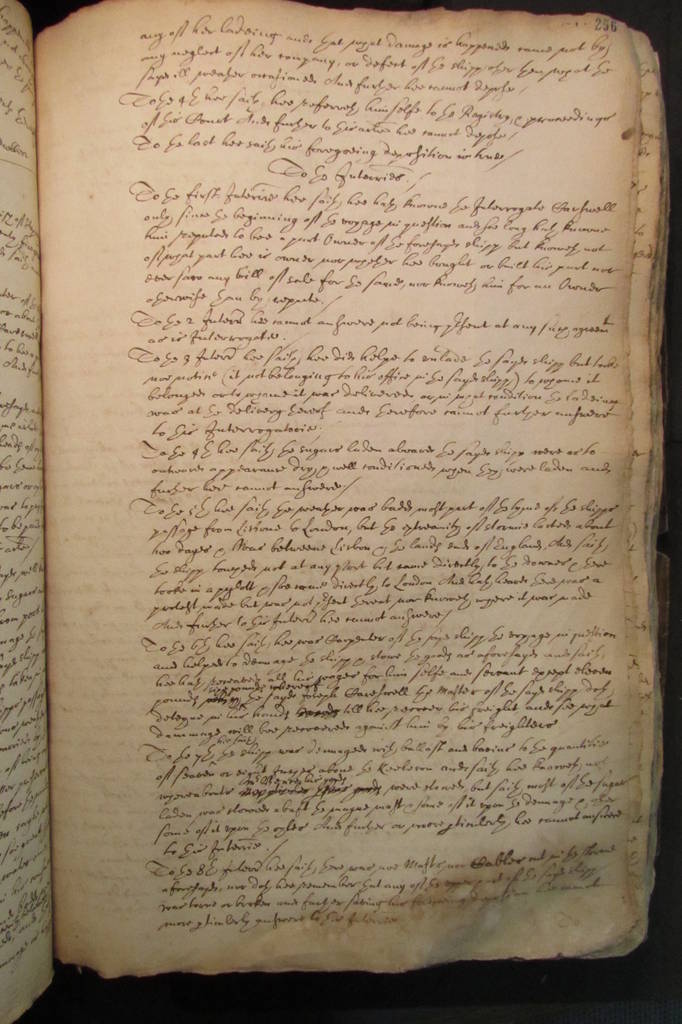 256
any of her ladeing and that what damage is happened came not by
any neglect of her company, or defect of the shipp other then what the
sayd ill weather occasioned And further hee cannot depose./
To the 4th hee saith hee referreth himselfe to the Registry & proceedings
of this Court And further to his hee cannot depose./
To the last hee saith his foregoeing deposition is true./
To the Interries./
To the first Interrie hee saith hee hath knowne the Interrogate Cushwell
only since the beginning of the voyage in question and soe long hath knowne
him reputed to bee a part Owner of the foresayd shipp but knoweth not
of what part hee is owner nor whether hee bought or built his part nor
ever saw any bill of sale for the same, nor knoweth him for an Owner
otherwise then by repute./
To the 2 Interie hee cannot answere not being present at any such agreemt
as is Interrogated./
To the 3 Interie hee saith hee did helpe to unlade the sayd shipp but tooke
noe notice (it not belonging to his office in the sayd shipp) to whome it
belonged or to whome it was delivered or in what condition the ladeing
was at the delivery thereof and therefore cannot further answere
to this Interrogatorie./
To the 4th hee saith the sugars laden aboard the sayd shipp were as to
outward appearance dry & well conditioned when they were laden and
further hee cannot answere./
To the 5th hee saith the weather was badd most part of the tyme of the shipps
passage from Lisbone to London, but the extreamity of stormie lasted about
two dayes & Nour betweene Lisbon & the lands end of England, And saith
the shipp touched not at any Port but came directly to the downes & there
tooke in a pylott & soe came directly to London And hath heard there was a
protest made but was not present thereat nor knoweth where it was made
And further to this Interie hee cannot answere./
To the 6th hee saith hee was Carpenter of the sayd shipp the voyage in question
and helped to dennage the shipp & stowe the goods as aforesayd and saith
hee hath received all his wages for him selfe and servant except eleven
pounds which pounds the sayd Joseph Cushwell the Master of the sayd shipp doth
deteyne in his hands till hee recover his freight and see what
dammage will bee recovered against him by his freighters
To the 7th hee saith the shipp was dennaged with ballast and bavins to the quantitie
of seaven or eight Inches above the Keelson and saith hee knoweth not
whereabouts Mr goods were stowed but saith most of the sugars
laden was stowed abaft the mayne mast & some of it upon the dennage &
some of it upon the other And further or more particularly hee cannot answere
to this Interrie./
To the 8th Interie hee saith there was noe Masts nor Cables cut in the storme
aforesayd, nor doth hee remember that any of the of the sayd shipp
was torne or broken and further saving his foregoeing deposition hee cannot
more particularly answere to this Interrie